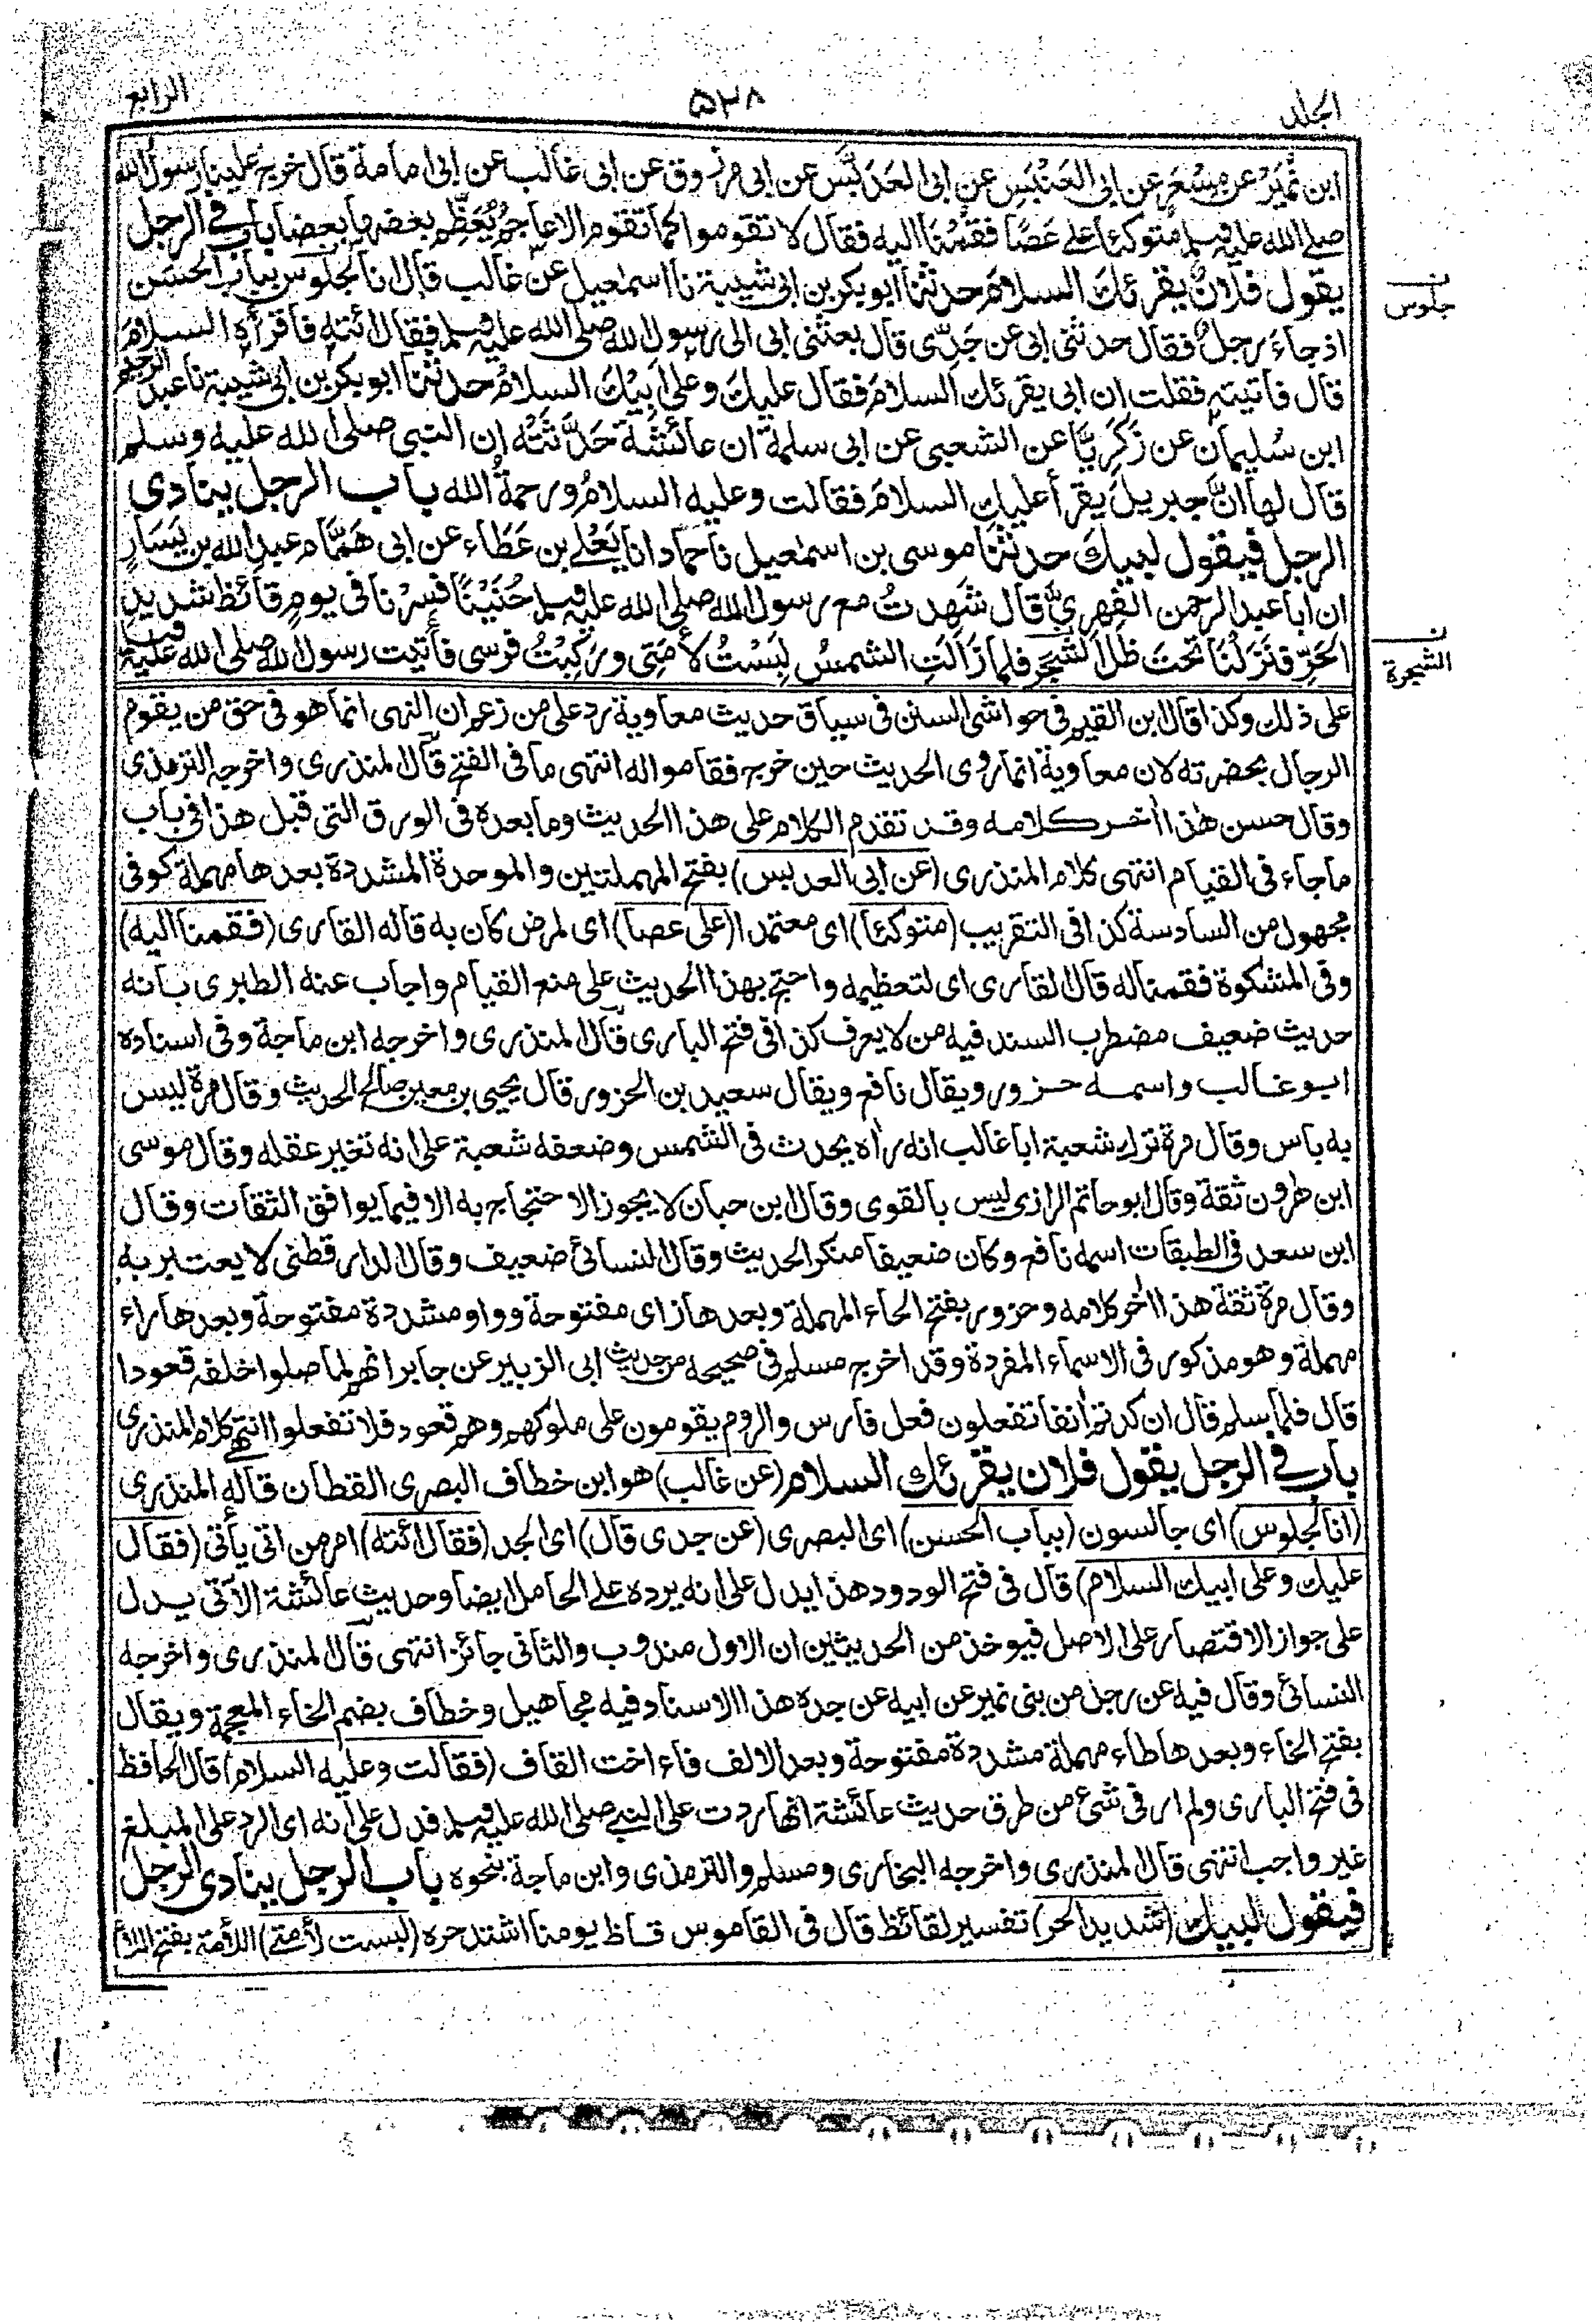 الجلد
٥٣٨
الرابع
ابن نُمَيْرٌ عن مِسْعَرٍ عن ابى العَنْبَسِ عن ابى العَدَبَّسِ عن ابى مرزوق عن ابى غالب عن ابى امامة قال خرج علينا رسول الله
صلى الله عليه وسلم متوكئا على عَصًا فقُمْنَا اليه فقال لا تقوموا كما تقوم الاعاجمُ يُعَظِّم بعضها بعضا باب في الرجل
يقول فلانٌ يقرئك السلام حدثنا ابو بكر بن ابى شيبة نا اسمعيل عن غالب قال انا لجلوس بباب الحسن
اذ جاء رجلٌ فقال حدثنى ابى عن جَدِّى قال بعثنى ابى الى رسول الله صلى الله عليه وسلم فقال ائته فاقرأه السلام
قال فاتيته فقلت ان ابى يقرئك السلامَ فقال عليكَ وعلى ابِيْكَ السلامُ حدثنا ابو بكر بن ابى شيبة نا عبد الرحيم
ابن سُليمان عن زَكَرِيَّا عن الشعبى عن ابى سلمة ان عائشة حَدَّثَتْه ان النبى صلى الله عليه وسلم
قال لها انَّ جبريلَ يقرأ عليكِ السلامَ فقالت وعليه السلامُ ورحمةُ الله باب الرجل ينادى
الرجل فيقول لبيك حدثنا موسى بن اسمعيل نا حماد انا يَعْلى بن عَطَاء عن ابى هَمَّام عبد الله بن يَسَارٍ
ان ابا عبد الرحمن الفِهرىَّ قال شَهِدتُ مع رسول الله صلى الله عليه وسلم حُنَيْنًا فسِرْنا فى يومٍ قَائظٍ شديدِ
الحَرِّ فنَزَلْنَا تحتَ ظلِّ الشجَرِ فلما زَالَتِ الشمسُ لَبِسْتُ لأْمَتِى وركِبْتُ فرسى فأتيت رسول الله صلى الله عليه وسلم
نــ
جلوس
نــ
الشجرة
على ذلك وكذا قال ابن القيم فى حواشى السنن فى سياق حديث معاوية رد على من زعم ان النهى انما هو فى حق من يقوم
الرجال بحضرته لان معاوية انما روى الحديث حين خرج فقاموا له انتهى ما فى الفتح قال المنذرى واخرجه الترمذى
وقال حسن هذا اٰخر كلامه وقد تقدم الكلام على هذا الحديث وما بعده فى الورق التى قبل هذا فى باب
ما جاء فى القيام انتهى كلام المنذرى (عن ابى العدبس) بفتح المهملتين والموحدة المشددة بعدها مهملة كوفى
مجهول من السادسة كذا فى التقريب (متوكئا) اى معتمدا (على عصا) اى لمرض كان به قاله القارى (فقمنا اليه)
وفى المشكوة فقمنا له قال القارى اى لتعظيمه واحتج بهذا الحديث على منع القيام واجاب عنه الطبرى بانه
حديث ضعيف مضطرب السند فيه من لا يعرف كذا فى فتح البارى قال المنذرى واخرجه ابن ماجة وفى اسناده
ابو غالب واسمه حزور ويقال نافع ويقال سعيد بن الحزور قال يحيى بن معين صالح الحديث وقال مرة ليس
به باس وقال مرة ترك شعبة ابا غالب انه راٰه يحدث فى الشمس وضعفه شعبة على انه تغير عقله وقال موسى
ابن هٰرون ثقة وقال ابو حاتم الرازى ليس بالقوى وقال ابن حبان لا يجوز الاحتجاج به الا فيما يوافق الثقات وقال
ابن سعد فى الطبقات اسمه نافع وكان ضعيفا منكر الحديث وقال النسائى ضعيف وقال الدارقطنى لا يعتبر به
وقال مرة ثقة هذا اٰخر كلامه وحزور بفتح الحاء المهملة وبعدها زاى مفتوحة وواو مشددة مفتوحة وبعدها راء
مهملة وهو مذكور فى الاسماء المفردة وقد اخرج مسلم فى صحيحه من حديث ابى الزبير عن جابر انهم لما صلوا خلفه قعودا
قال فلما سلم قال ان كدتم اٰنفا تفعلون فعل فارس والروم يقومون على ملوكهم وهم قعود فلا تفعلوا انتهى كلام المنذرى
باب فى الرجل يقول فلان يقرئك السلام (عن غالب) هو ابن خطاف البصرى القطان قاله المنذرى
(انا لجلوس) اى جالسون (بباب الحسن) اى البصرى (عن جدى قال) اى الجد (فقال ائته) امر من اتى يأتى (فقال
عليك وعلى ابيك السلام) قال فى فتح الودود هذا يدل على انه يرده على الحامل ايضا وحديث عائشة الاٰتى يدل
على جواز الاقتصار على الاصل فيوخذ من الحديثين ان الاول مندوب والثانى جائز انتهى قال المنذرى واخرجه
النسائى وقال فيه عن رجل من بنى نمير عن ابيه عن جده هذا الاسناد فيه مجاهيل وخطاف بضم الخاء المعجمة ويقال
بفتح الخاء وبعدها طاء مهملة مشددة مفتوحة وبعد الالف فاء اخت القاف (فقالت وعليه السلام) قال الحافظ
فى فتح البارى ولم ار فى شئ من طرق حديث عائشة انها ردت على النبى صلى الله عليه وسلم فدل على انه اى الرد على المبلغ
غير واجب انتهى قال المنذرى واخرجه البخارى ومسلم والترمذى وابن ماجة بنحوه باب الرجل ينادى الرجل
فيقول لبيك (شديد الحر) تفسير لقائظ قال فى القاموس قاظ يومنا اشتد حره (لبست لأمتى) اللأمة بفتح اللام